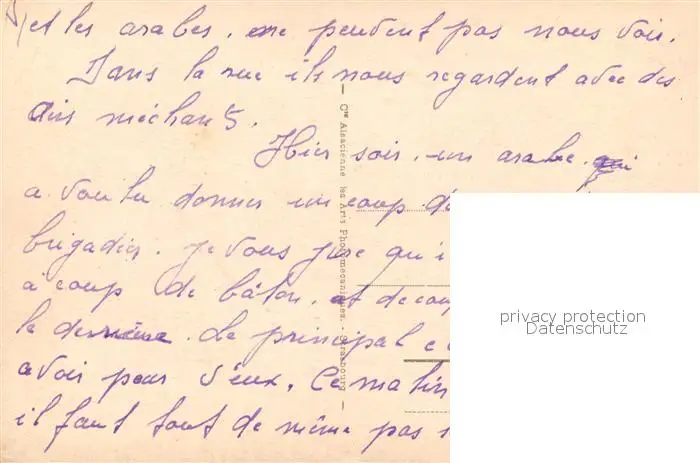 et les arabes. ne peuvent pas nous voir.
Dans la rue ils nous regardent avec des
airs méchants.
Hier soir. un arabe. qui
a voulu donner un coup de
brigadier. je vous jure qu'i
à coup de bâton. et de coup
le derrière. Le principal c
avoir peur d'eux. Ce matin
il faut tout de même pas
Cie Alsacienne des Arts Photomécaniques. - Strasbourg
privacy protection
Datenschutz